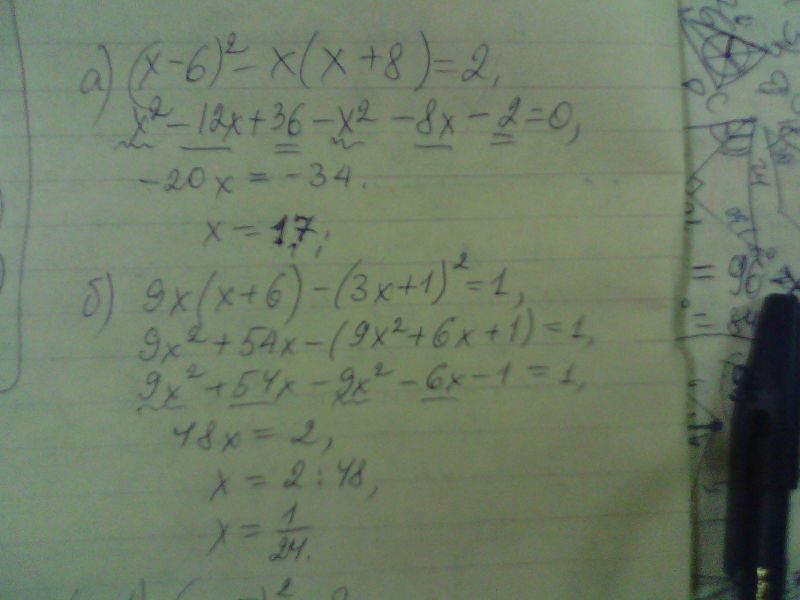 а) (x-6)² - x(x+8)=2,
x² - 12x + 36 - x² - 8x - 2 = 0,
-20x = -34.
x = 1,7;
б) 9x(x+6) - (3x+1)² = 1,
9x² + 54x - (9x² + 6x + 1) = 1,
9x² + 54x - 9x² - 6x - 1 = 1,
48x = 2,
x = 2 : 48,
x = 1/24.
= 96